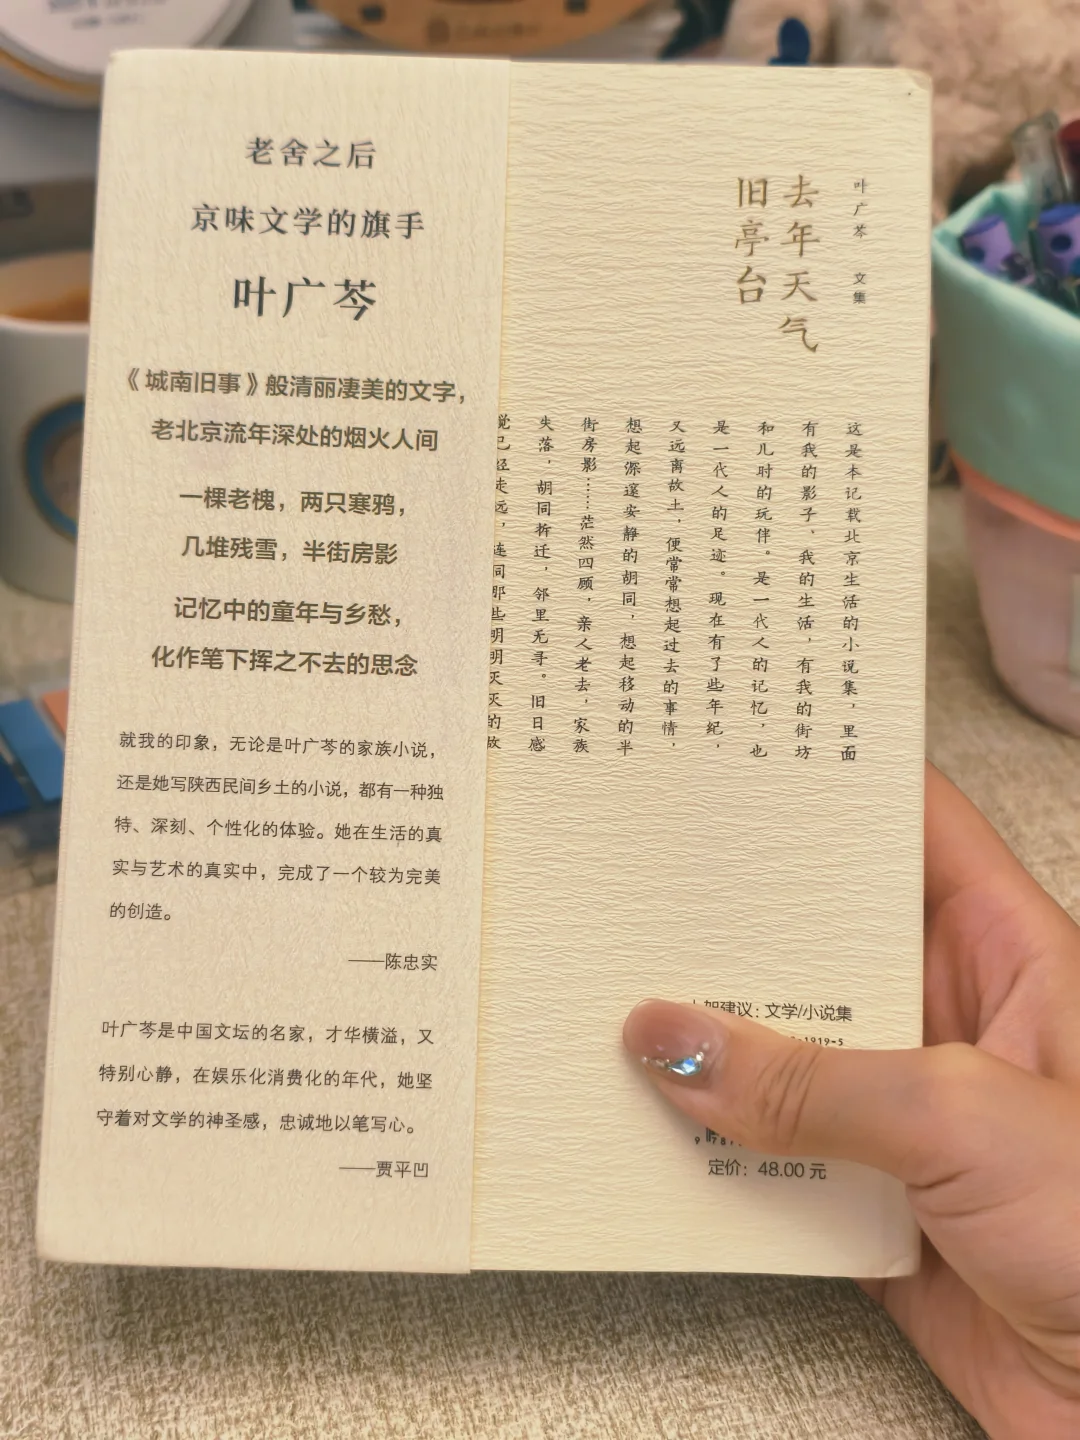 老舍之后
京味文学的旗手
叶广芩
《城南旧事》般清丽凄美的文字，
老北京流年深处的烟火人间
一棵老槐，两只寒鸦，
几堆残雪，半街房影
记忆中的童年与乡愁，
化作笔下挥之不去的思念
就我的印象，无论是叶广芩的家族小说，
还是她写陕西民间乡土的小说，都有一种独
特、深刻、个性化的体验。她在生活的真
实与艺术的真实中，完成了一个较为完美
的创造。
——陈忠实
叶广芩是中国文坛的名家，才华横溢，又
特别心静，在娱乐化消费化的年代，她坚
守着对文学的神圣感，忠诚地以笔写心。
——贾平凹
叶广芩 文集
去年天气
旧亭台
这是本记载北京生活的小说集，里面
有我的影子，我的生活，有我的街坊
和儿时的玩伴。是一代人的记忆，也
是一代人的足迹。现在有了些年纪，
又远离故土，便常常想起过去的事情，
想起深邃安静的胡同，想起移动的半
街房影……茫然四顾，亲人老去，家族
失落，胡同拆迁，邻里无寻。旧日感
觉已经走远，连同那些明明灭灭的故
架建议：文学/小说集
1919-5
定价：48.00 元